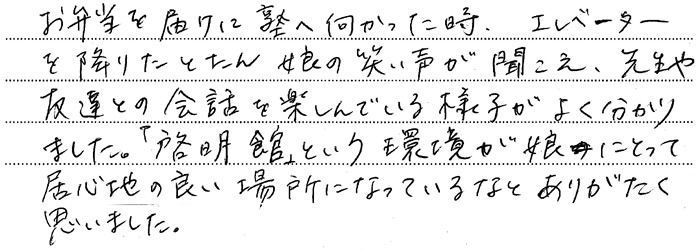 お弁当を届けに塾へ向かった時、エレベーター
を降りたとたん娘の笑い声が聞こえ、先生や
友達との会話を楽しんでいる様子がよく分かり
ました。「啓明館」という環境が娘にとって
居心地の良い場所になっているなとありがたく
思いました。